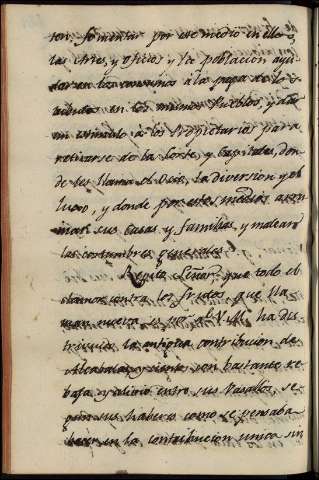 sen fomentar por ese medio en ellos
las Artes, y oficios y la poblacion ayu
dar en los consumos a la paga de los
tributos en los mismos Pueblos, y dar
un estimulo à los Propietarios para
retirarse de la Corte, y Capitales, don
de les llama el Ocio, la Diversion y el
luxo, y donde por estos medios arrui
nan sus Casas y familias, y malean
las costumbres generales.
Repito Señor, que todo el
clamor contra los frutos que lla
man nueva es por q. V.M. ha dis
tribuido la antigua contribucion de
Alcabalas y cientos con bastante re
baja y alivio entre sus Vasallos, se
gun sus haberes como se pensaba
hacer en la contribucion unica sin